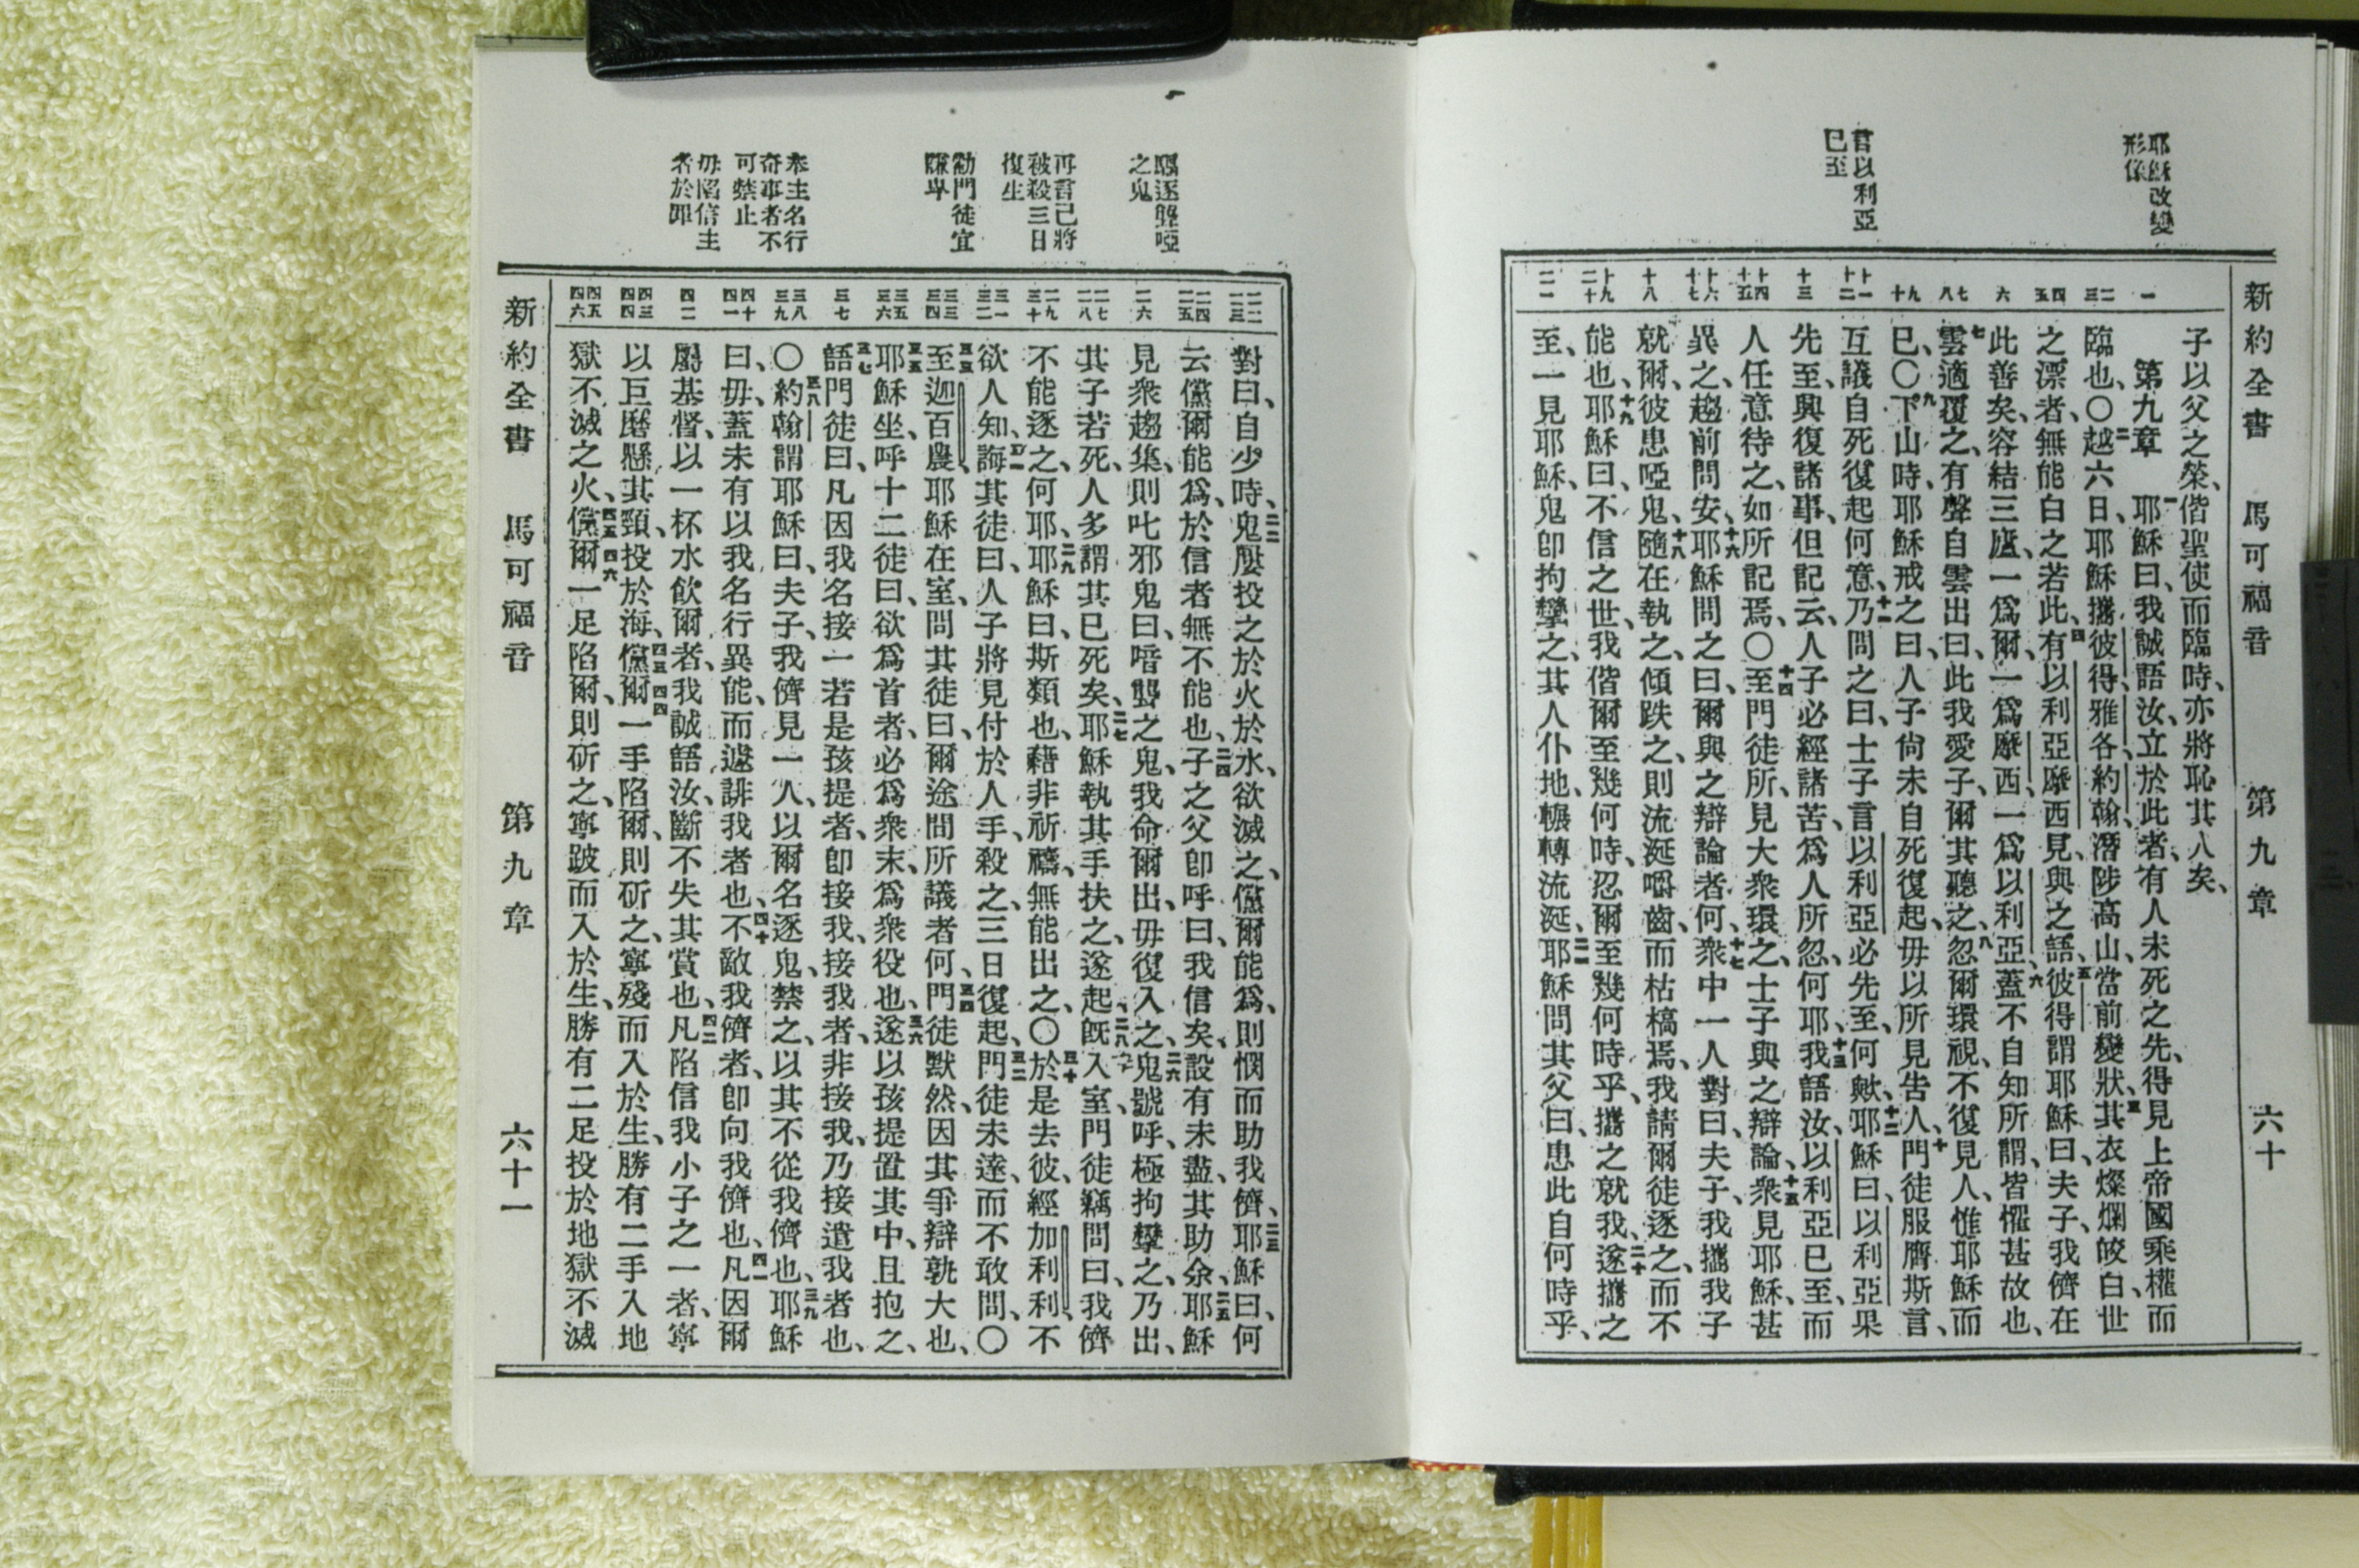 新約全書 馬可福音 第九章 六十
耶穌改變
形像
言以利亞
已至
一
二三
四五
六
七八
九十
十一十二
十三
十四十五
十六十七
十八
十九二十
二一
子以父之榮、偕聖使而臨時、亦將恥其人矣、
第九章 一耶穌曰、我誠語汝、立於此者、有人未死之先、得見上帝國乘權而
臨也、〇二越六日、耶穌攜彼得、雅各、約翰、潛陟高山、當前變狀、三其衣燦爛皎白、世
之漂者、無能白之若此、四有以利亞摩西見、與之語、五彼得謂耶穌曰、夫子、我儕在
此善矣、容結三廬、一爲爾、一爲摩西、一爲以利亞、六蓋不自知所謂、皆懼甚故也、
七雲適覆之、有聲自雲出曰、此我愛子、爾其聽之、八忽爾環視、不復見人、惟耶穌而
已、〇九下山時、耶穌戒之曰、人子尙未自死復起、毋以所見告人、十門徒服膺斯言、
互議自死復起何意、十一乃問之曰、士子言以利亞必先至、何歟、十二耶穌曰、以利亞果
先至、興復諸事、但記云、人子必經諸苦、爲人所忽、何耶、十三我語汝、以利亞已至、而
人任意待之、如所記焉、〇十四至門徒所、見大衆環之、士子與之辯論、十五衆見耶穌、甚
異之、趨前問安、十六耶穌問之曰、爾與之辯論者何、十七衆中一人對曰、夫子、我攜我子
就爾、彼患啞鬼、十八隨在執之、傾跌之、則流涎嚼齒、而枯槁焉、我請爾徒逐之、而不
能也、十九耶穌曰、不信之世、我偕爾至幾何時、忍爾至幾何時乎、攜之就我、二十遂攜之
至、一見耶穌、鬼卽拘攣之、其人仆地、輾轉流涎、二一耶穌問其父曰、患此自何時乎、
驅逐聾啞
之鬼
再言己將
被殺三日
復生
勸門徒宜
謙卑
奉主名行
奇事者不
可禁止
毋陷信主
者於罪
二二二三
二四二五
二六
二七二八
二九三十
三一三二
三三三四
三五三六
三七
三八三九
四十四一
四二
四三四四
四五四六
對曰、自少時、二二鬼屢投之於火於水、欲滅之、儻爾能爲、則憫而助我儕、二三耶穌曰、何
云儻爾能爲、於信者無不能也、二四子之父卽呼曰、我信矣、設有未盡、其助余、二五耶穌
見衆趨集、則叱邪鬼曰、喑聾之鬼、我命爾出、毋復入之、二六鬼號呼、極拘攣之、乃出、
其子若死、人多謂其已死矣、二七耶穌執其手扶之、遂起、二八旣入室、門徒竊問曰、我儕
不能逐之、何耶、二九耶穌曰、斯類也、藉非祈禱、無能出之、〇三十於是去彼、經加利利、不
欲人知、三一誨其徒曰、人子將見付於人手、殺之、三日復起、三二門徒未達、而不敢問、〇
三三至迦百農、耶穌在室、問其徒曰、爾途間所議者何、三四門徒默然、因其爭辯孰大也、
三五耶穌坐、呼十二徒曰、欲爲首者、必爲衆末、爲衆役也、三六遂以孩提置其中、且抱之、
三七語門徒曰、凡因我名接一若是孩提者、卽接我、接我者、非接我、乃接遣我者也、
〇三八約翰謂耶穌曰、夫子、我儕見一人、以爾名逐鬼、禁之、以其不從我儕也、三九耶穌
曰、毋、蓋未有以我名行異能、而遽誹我者也、四十不敵我儕者、卽向我儕也、四一凡因爾
屬基督、以一杯水飲爾者、我誠語汝、斷不失其賞也、四二凡陷信我小子之一者、寧
以巨磨懸其頸、投於海、四三四四儻爾一手陷爾、則斫之、寧殘而入於生、勝有二手入地
獄不滅之火、四五四六儻爾一足陷爾、則斫之、寧跛而入於生、勝有二足投於地獄不滅
新約全書 馬可福音 第九章 六十一